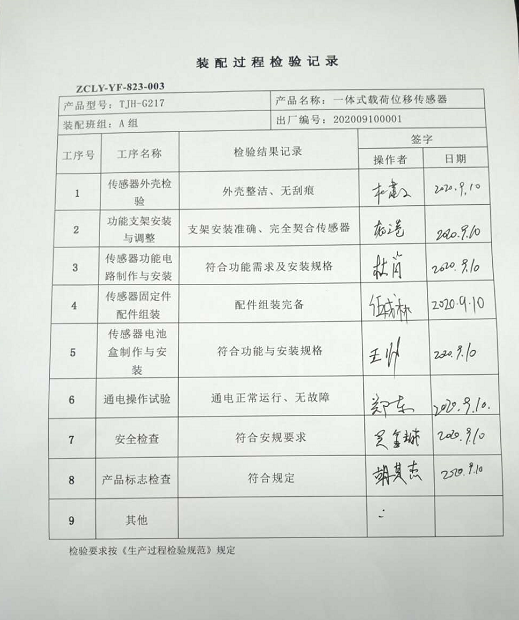 装配过程检验记录
ZCLY-YF-823-003
产品型号：TJH-G217 产品名称：一体式载荷位移传感器
装配班组：A 组 出厂编号：202009100001
工序号 工序名称 检验结果记录 签字
操作者 日期
1 传感器外壳检验 外壳整洁、无刮痕 2020.9.10
2 功能支架安装与调整 支架安装准确、完全契合传感器 2020.9.10
3 传感器功能电路制作与安装 符合功能需求及安装规格 2020.9.10
4 传感器固定件配件组装 配件组装完备 2020.9.10
5 传感器电池盒制作与安装 符合功能与安装规格 2020.9.10
6 通电操作试验 通电正常运行、无故障 2020.9.10.
7 安全检查 符合安规要求 2020.9.10
8 产品标志检查 符合规定 胡其杰 2020.9.10
9 其他
检验要求按《生产过程检验规范》规定